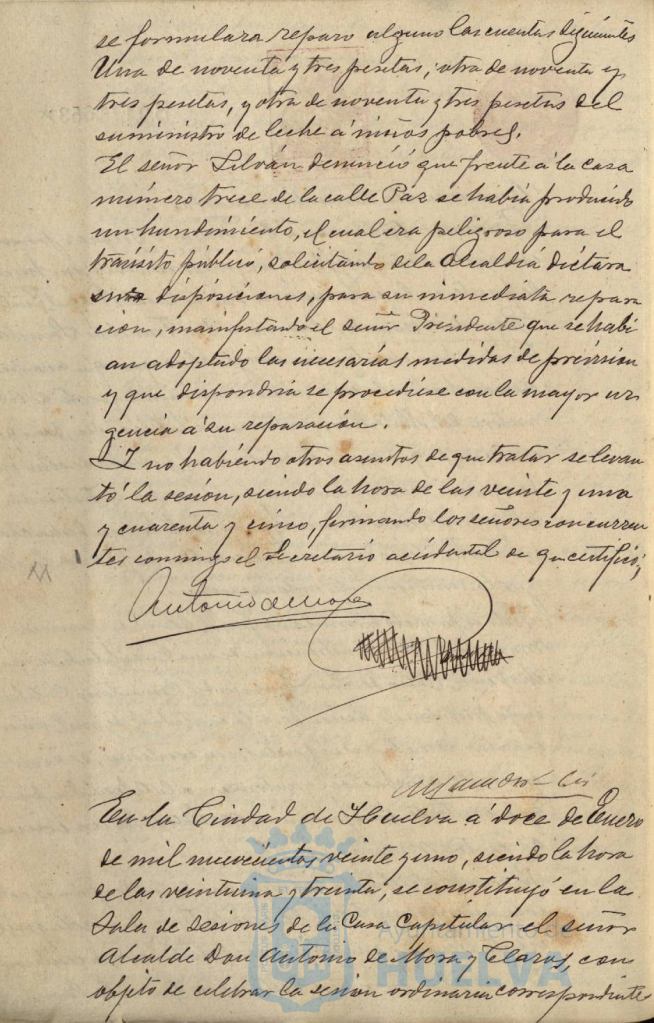 se formulara reparo alguno las cuentas siguientes
Una de noventa y tres pesetas; otra de noventa y
tres pesetas, y otra de noventa y tres pesetas del
suministro de leche á niños pobres.
El señor Silván denunció que frente á la casa
número trece de la calle Paz se había producido
un hundimiento, el cual era peligroso para el
tránsito público, solicitando de la Alcaldía dictara
sus disposiciones, para su inmediata repara
ción, manifestando el señor Presidente que se habí
an adoptado las necesarias medidas de previsión
y que dispondría se procediese con la mayor ur
gencia á su reparación.
Y no habiendo otros asuntos de que tratar se levan
tó la sesión, siendo la hora de las veinte y una
y cuarenta y cinco, firmando los señores concurren
tes conmigo el Secretario accidental de que certifico;
Antonio de Mora
En la Ciudad de Huelva á doce de Enero
de mil novecientos veinte y uno, siendo la hora
de las veintiuna y treinta, se constituyó en la
Sala de Sesiones de la Casa Capitular el señor
Alcalde Don Antonio de Mora y Claros, con
objeto de celebrar la sesión ordinaria correspondiente
HUELVA